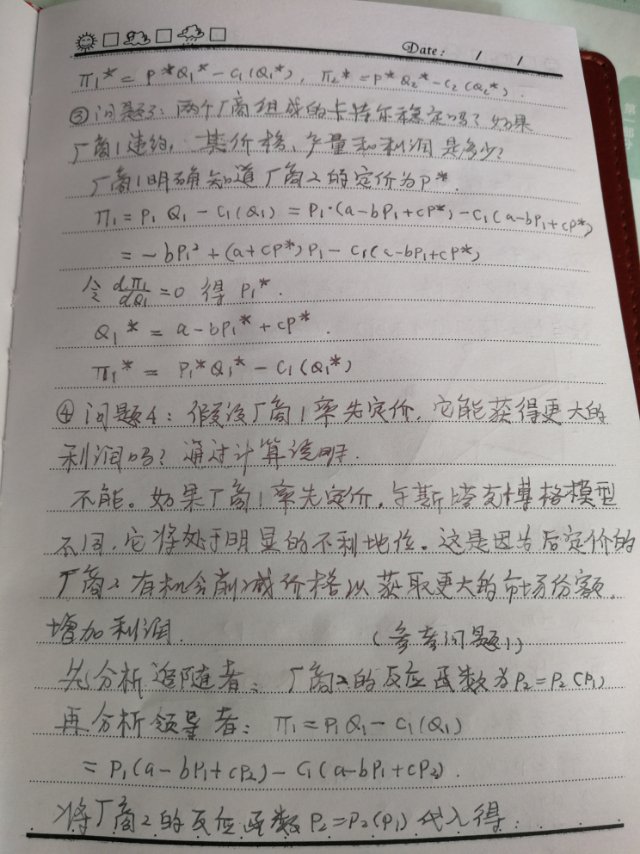 Date: / /
π₁* = P*Q₁* - C₁(Q₁*), π₂* = P*Q₂* - C₂(Q₂*).
③问题3:两个厂商组成的卡特尔稳定吗?如果
厂商1违约,其价格、产量和利润是多少?
厂商1明确知道厂商2的定价为P*.
π₁ = P₁Q₁ - C₁(Q₁) = P₁·(a-bP₁+cP*) - C₁(a-bP₁+cP*)
= -bP₁² + (a+cP*)P₁ - C₁(a-bP₁+cP*)
令 dπ₁/dQ₁ = 0 得 P₁*.
Q₁* = a-bP₁*+cP*.
π₁* = P₁*Q₁* - C₁(Q₁*)
④问题4:假设厂商1率先定价,它能获得更大的
利润吗?通过计算说明.
不能。如果厂商1率先定价,与斯塔克博格模型
不同,它将处于明显的不利地位。这是因为后定价的
厂商2有机会削减价格以获取更大的市场份额,
增加利润.
(参考问题1)
先分析追随者:厂商2的反应函数为P₂=P₂(P₁)
再分析领导者:π₁=P₁Q₁-C₁(Q₁)
=P₁(a-bP₁+cP₂)-C₁(a-bP₁+cP₂).
将厂商2的反应函数P₂=P₂(P₁)代入得: